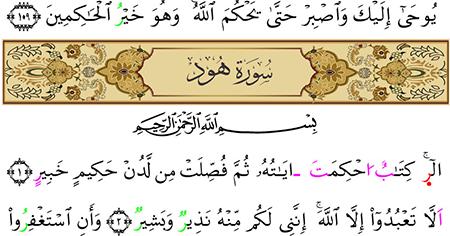 يُوحَىٰ إِلَيْكَ وَاصْبِرْ حَتَّىٰ يَحْكُمَ اَللَّهُ وَهُوَ خَيْرُ اُلْحَٰكِمِينَ ١٠٩
سُورَةُ هُودٍ
بِسْمِ اللَّهِ الرَّحْمَٰنِ الرَّحِيمِ
الٓرۚ كِتَٰبٌ احْكِمَتَ ايَٰتُهُۥ ثُمَّ فُصِّلَتْ مِن لَّدُنْ حَكِيمٍ خَبِيرٍ ١
اَلَّا تَعْبُدُوٓاْ إِلَّا اَللَّهَ إِنَّنِي لَكُم مِّنْهُ نَذِيرٌ وَبَشِيرٌ ٢ وَأَنِ اِسْتَغْفِرُواْ